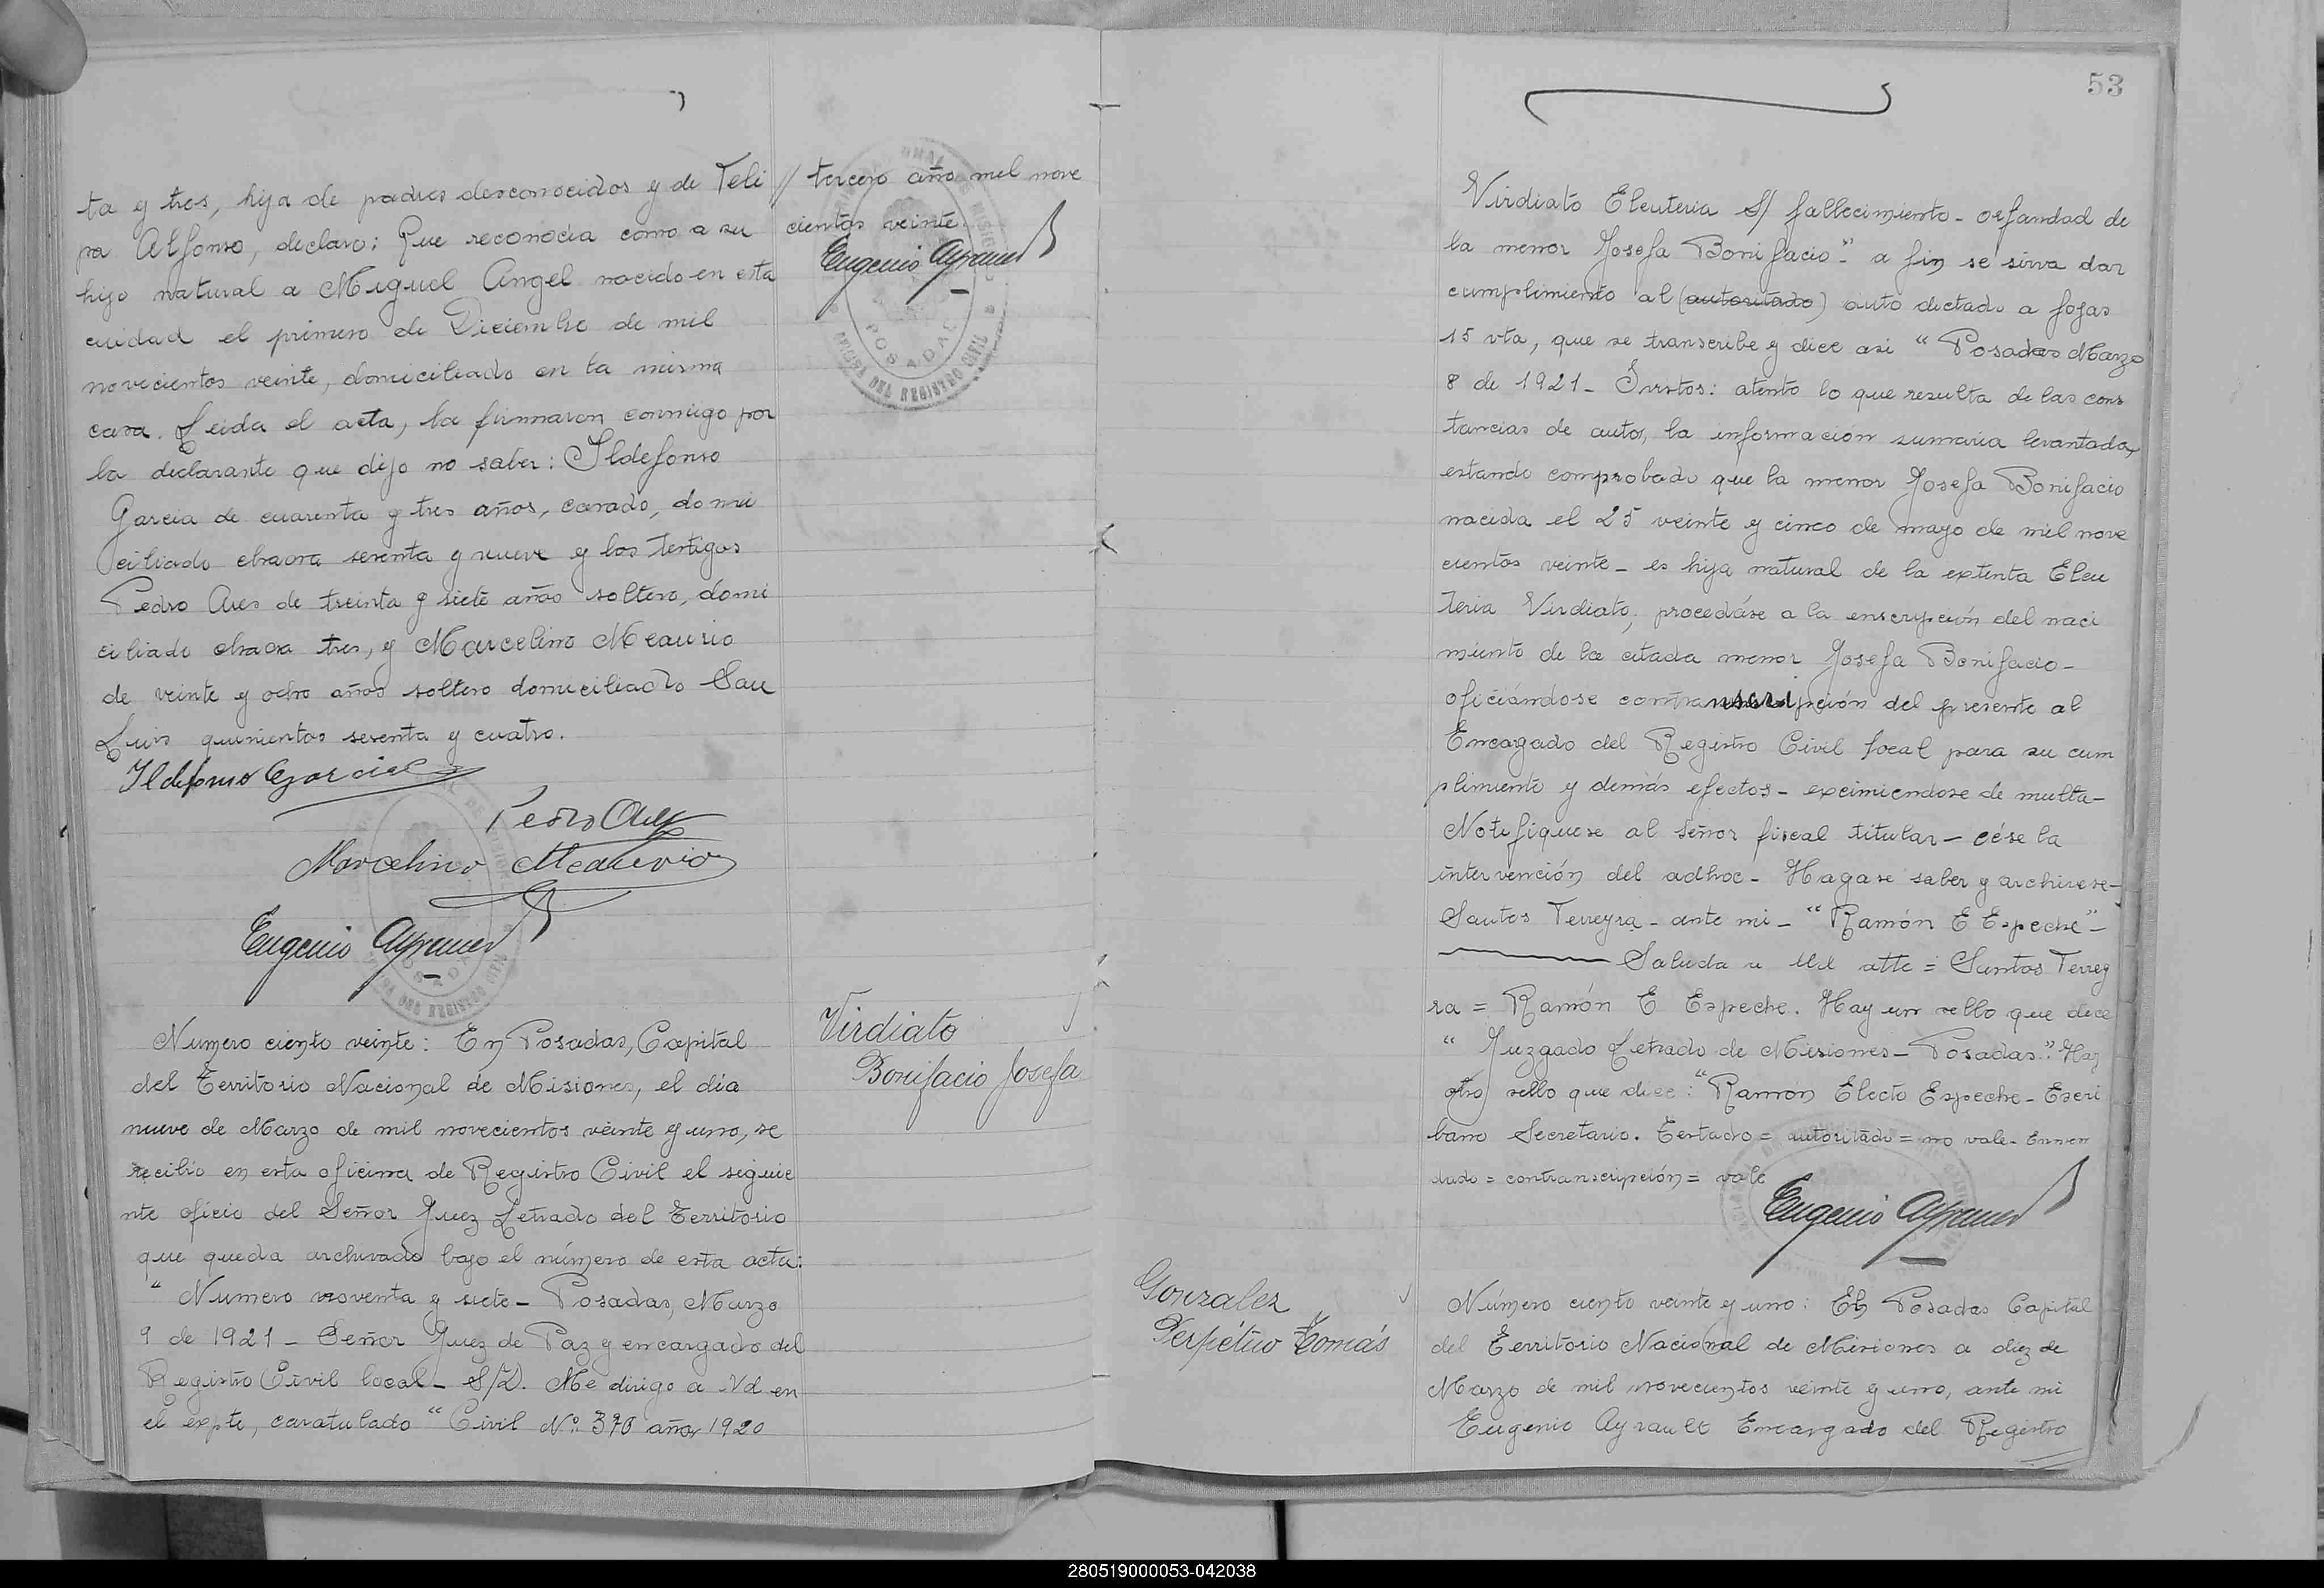 ta y tres, hija de padres desconocidos y de Teli
pa Alfonso, declaro: Que reconocia como a su
hijo natural a Miguel Angel nacido en esta
cuidad el primero de Diciembre de mil
novecientos veinte, domiciliado en la misma
casa. Leida el acta, la firmaron conmigo por
la declarante que dijo no saber: Ildefonso
Garcia de cuarenta y tres años, casado, domi
ciliado chacra sesenta y nueve y los testigos
Pedro Ares de treinta y siete años soltero, domi
ciliado chacra tres, y Marcelino Meaurio
de veinte y ocho años soltero domiciliado San
Luis quinientos sesenta y cuatro.
Ildefonso Garcia
Pedro
Marcelino Meaurio
Eugenio Ayrault
// tercero año mil nove
cientos veinte.
Eugenio Ayrault
POSADAS
OFICINA DEL REGISTRO CIVIL
Virdiato
Bonifacio Josefa
Numero ciento veinte: En Posadas, Capital
del Territorio Nacional de Misiones, el dia
nueve de Marzo de mil novecientos veinte y uno, se
recibio en esta oficina de Registro Civil el siguie
nte oficio del Señor Juez Letrado del Territorio
que queda archivado bajo el número de esta acta:
" Numero noventa y siete - Posadas, Marzo
9 de 1921 - Señor Juez de Paz y encargado del
Registro Civil local - S/D. Me dirigo a Vd en
el expte, caratulado " Civil Nº. 370 año 1920
53
Virdiato Eleuteria S/ fallecimiento - orfandad de
la menor Josefa Bonifacio -" a fin se sirva dar
cumplimiento al (autoritado) auto dictado a fojas
15 vta, que se transcribe y dice asi " Posadas Marzo
8 de 1921 - : atento lo que resulta de las cons
tancias de autos, la información sumaria levantada,
estando comprobado que la menor Josefa Bonifacio
nacida el 25 veinte y cinco de mayo de mil nove
cientos veinte - es hija natural de la extinta Eleu
teria Virdiato, procedáse a la enscripción del naci
miento de la citada menor Josefa Bonifacio -
oficiándose contranscripción del presente al
Encargado del Registro Civil local para su cum
plimiento y demás efectos - eximiendose de multa -
Notifiquese al señor fiscal titular - cése la
intervención del adhoc - Hagase saber y archivese -
Santos Terreyra - ante mi - " Ramón E Espeche" -
Saluda a Ud atte = Santos Terrey
ra = Ramón E Espeche. Hay un sello que dice
" Juzgado Letrado de Misiones - Posadas". Hay
otro sello que dice: "Ramón Electo Espeche - Escri
bano Secretario. Testado = autoritado = no vale - Enmen
dado = contranscripción = vale
Eugenio Ayrault
Gonzalez
Perpétuo Tomás
Número ciento veinte y uno: En Posadas Capital
del Territorio Nacional de Misiones a diez de
Marzo de mil novecientos veinte y uno, ante mi
Eugenio Ayrault Encargado del Registro
280519000053-042038